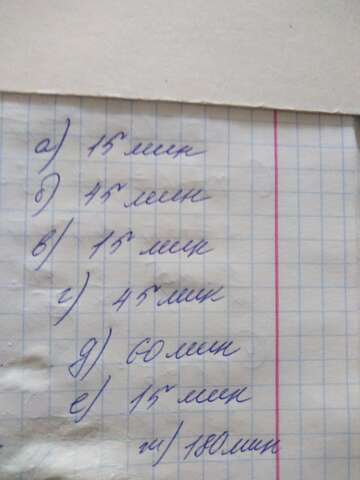 а) 15 мин
б) 45 мин
в) 15 мин
г) 45 мин
д) 60 мин
е) 15 мин
ж) 180 мин